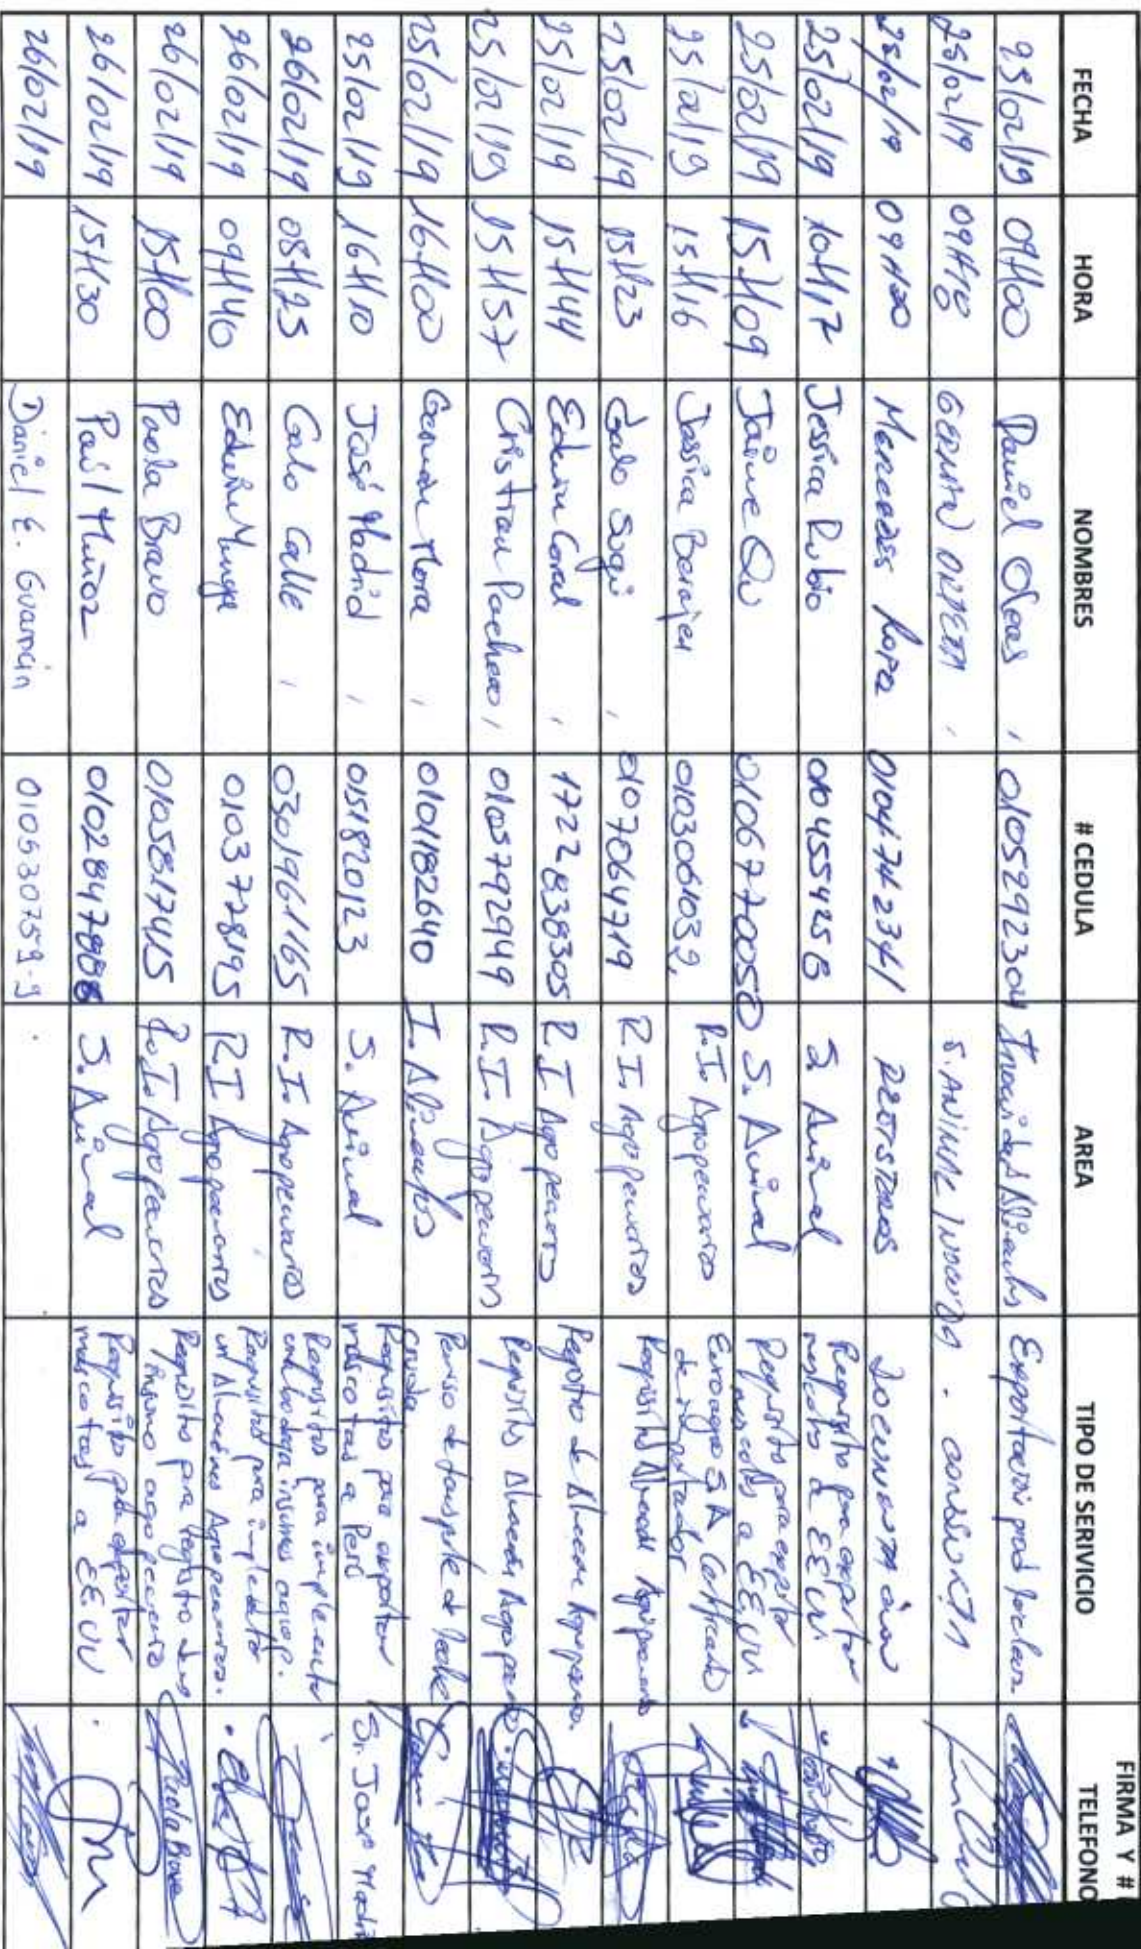 FECHA HORA NOMBRES # CEDULA AREA TIPO DE SERIVICIO FIRMA Y #
TELEFONO
25/02/19 09H00 Daniel Oleas 0105292304 Inocuidad Alimentos Exportación
25/02/19 09H10 GERMAN S. ANIMAL / INOCUIDAD. CONSULTA
25/02/19 09H20 Mercedes Lopez
25/02/19 10H17 Jessica Rubio 0104554256 S. Animal Requisito para exportar
mascota a EEUU
25/02/19 15H09 Jaime 0106770050 S. Animal Requisito para exportar
mascotas a EEUU
25/02/19 15H16 Jessica 0103061039 R.I. Agropecuarios S.A. Certificado
de importador
25/02/19 15H23 Galo 0107064719 R.I. Agropecuarios Requisito Almacén Agropecuario
25/02/19 15H44 Edwin 1722838305 R.I Agropecuarios Registro de Almacén Agropecuario.
25/02/19 15H57 Cristian Pacheco 0105792949 R.I. Agropecuarios Requisitos Almacén Agropecuario.
25/02/19 16H00 Germán Mora 0101182640 I. Alimentos Permiso de transporte de leche
cruda
25/02/19 16H10 José Madrid 0151820123 S. Animal Requisito para exportar
mascotas a Perú
Sr. José Madrid
26/02/19 08H25 Galo Calle 0301961165 R.I. Agropecuarios Requisitos para implementar
una bodega insumos agrop.
26/02/19 09H40 Edwin 0103778195 R.I Agropecuarios Requisitos para implementar
un Almacenes Agropecuarios.
26/02/19 15H00 Paola Bravo 0105817415 R.I. Agropecuarios Requisito para registro de
insumo agropecuario
Paola Bravo
26/02/19 15H30 Paúl Muñoz S. Animal Requisito para exportar
mascotas a EEUU
26/02/19 Daniel E. Guamán 010630759-9